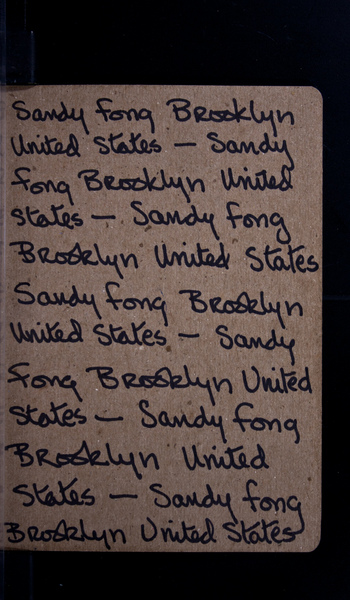 Sandy Fong Brooklyn
United States — Sandy
Fong Brooklyn United
States — Sandy Fong
Brooklyn United States
Sandy Fong Brooklyn
United States — Sandy
Fong Brooklyn United
States — Sandy Fong
Brooklyn United
States — Sandy Fong
Brooklyn United States